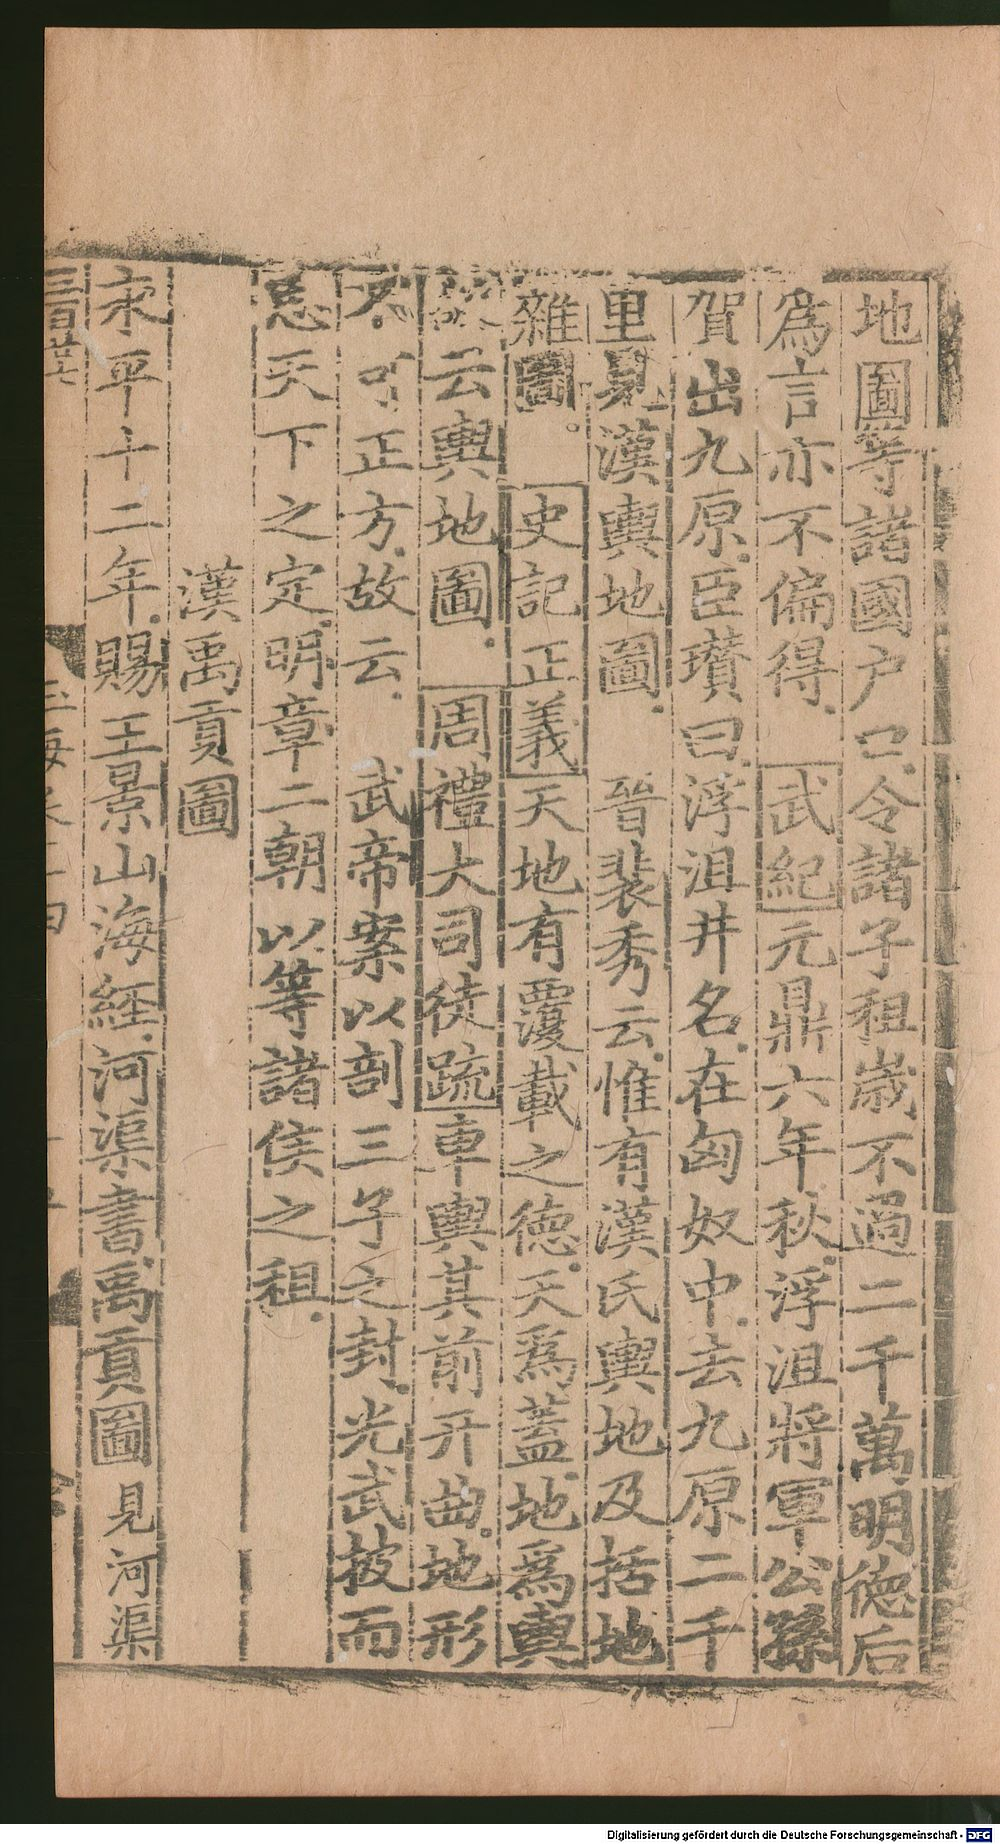 地圖等諸國户口令諸子租歲不過二千萬明德后
為言亦不偏得 武紀元鼎六年秋浮沮將軍公孫
賀出九原臣瓚曰浮沮井名在匈奴中去九原二千
里見漢輿地圖 晉裴秀云惟有漢氏輿地及括地
雜圖 史記正義天地有覆載之德天為蓋地為輿
故云輿地圖 周禮大司徒疏車輿其前开曲地形
不可正方故云 武帝案以剖三子之封光武披而
天下之定明章二朝以等諸侯之租
漢禹貢圖
永平十二年賜王景山海經河渠書禹貢圖見河渠
三百廿七
玉海卷十四
Digitalisierung gefördert durch die Deutsche Forschungsgemeinschaft - DFG